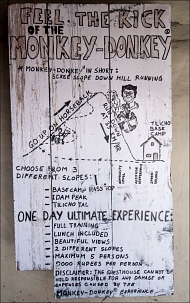 FEEL THE KICK
OF THE
MONKEY-DONKEY
A "MONKEY-DONKEY" IN SHORT:
SCREE SLOPE DOWN HILL RUNNING
GO UP ON HORSEBACK
RUN
TILICHO
BASE
CAMP
CHOOSE FROM 3
DIFFERENT SLOPES:
- BASECAMP
- EDAM PEAK
- TILICHO TAL
ONE DAY ULTIMATE EXPERIENCE:
- FULL TRAINING
- LUNCH INCLUDED
- BEAUTIFUL VIEWS
- 2 DIFFERENT SLOPES
- MAXIMUM 5 PERSONS
- RUPEES PER PERSON
DISCLAIMER: THE GUESTHOUSE CANNOT BE
HELD RESPONSIBLE FOR ANY DAMAGE OR
EXPENSES CAUSED BY THE
"MONKEY-DONKEY" EXPERIENCE.